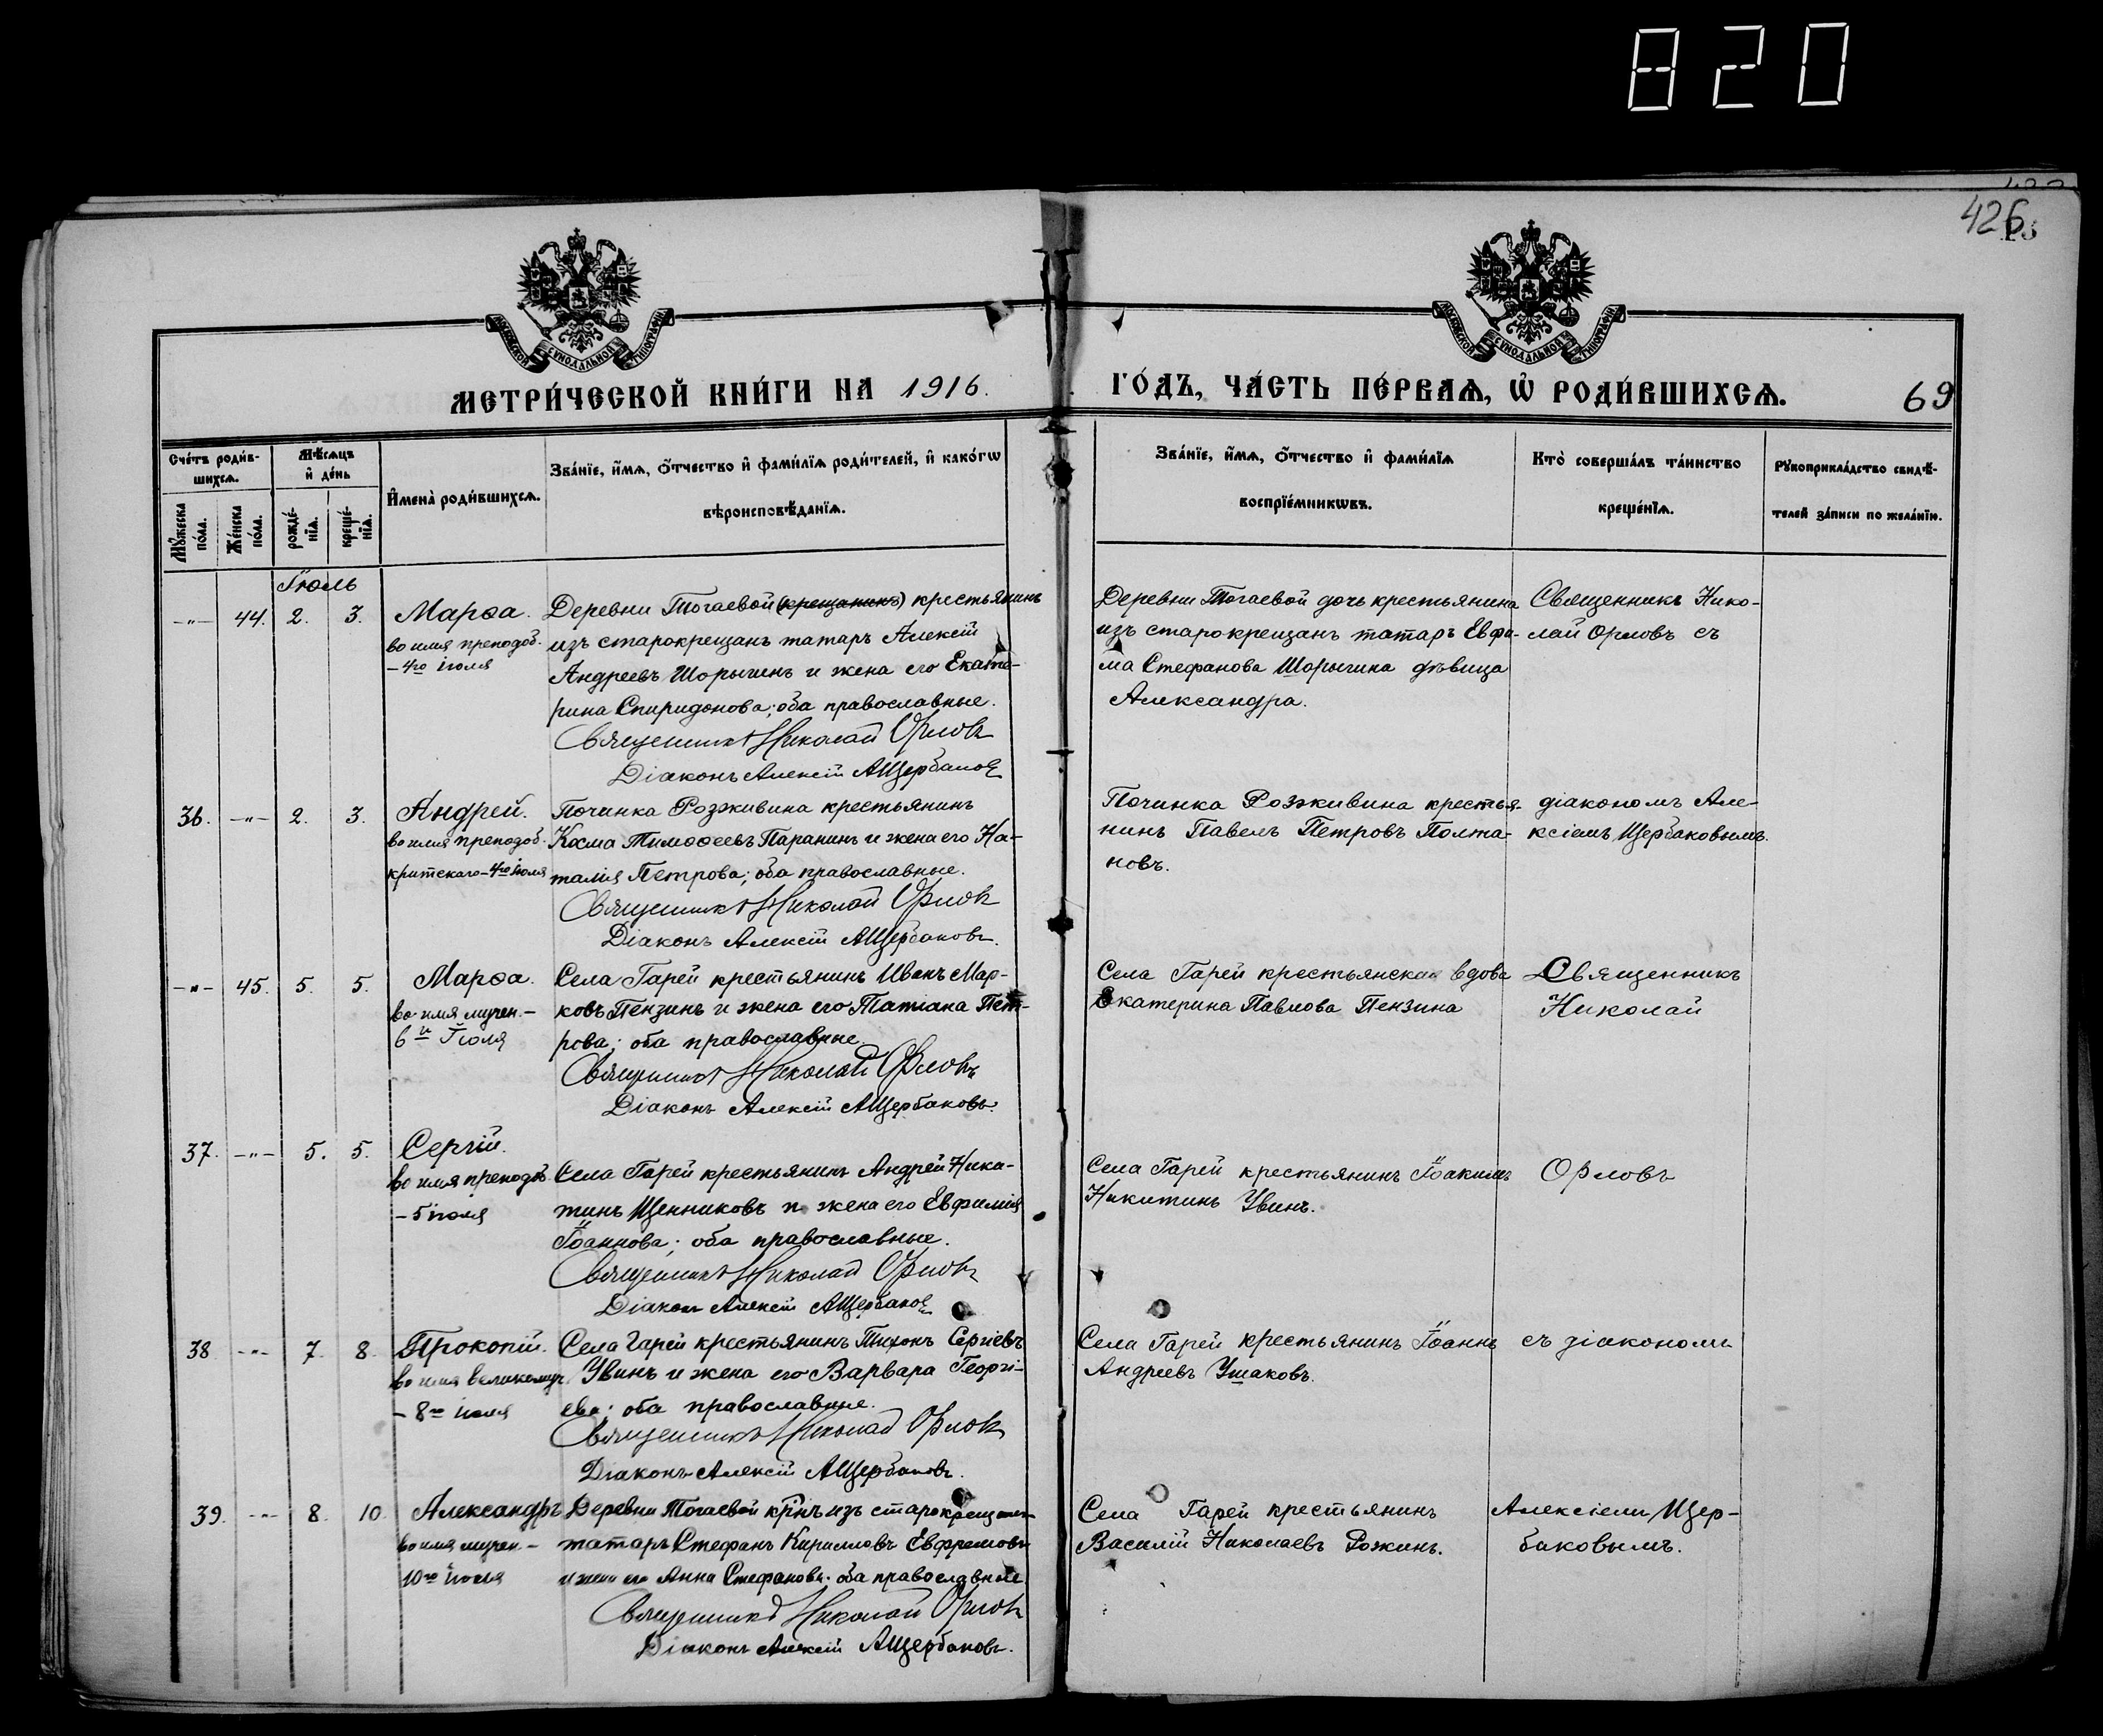 820
426
МОСКОВСКОЙ СУНОДАЛЬНОЙ ТИПОГРАФІИ
МОСКОВСКОЙ СУНОДАЛЬНОЙ ТИПОГРАФІИ
МЕТРИ́ЧЕСКОЙ КНИ́ГИ НА 1916. ГО́ДЪ, ЧА́СТЬ ПЕ́РВАѦ, Ѡ҆ РОДИ́ВШИХСѦ. 69
Сче́тъ роди́в-
шихсѧ.
Мꙋ́жеска по́ла.
Же́нска по́ла.
Мѣ́сѧцъ и҆ де́нь
рожде́-
нїѧ.
креще́-
нїѧ.
И҆мена̀ роди́вшихсѧ.
Зва́нїе, и҆́мѧ, ѻ҆́тчество и҆ фами́лїѧ роди́телей, и҆ како́гѡ
вѣроисповѣ́данїѧ.
Зва́нїе, и҆́мѧ, ѻ҆́тчество и҆ фами́лїѧ
воспрїе́мникѡвъ.
Кто̀ соверша́лъ та́инство
креще́нїѧ.
Рꙋкоприкла́дство свидѣ́-
телей за́писи по жела́нїю.
Іюль
-"- 44. 2. 3. Марѳа.
во имя преподоб.
- 4го іюля
Деревни Тогаевой (крещанинъ) крестьянинъ
изъ старокрещанъ татаръ Алексій
Андреевъ Шорыгинъ и жена его Екате-
рина Спиридонова; оба православные.
Священникъ Николай Орловъ
Діаконъ Алексій А Щербаковъ
Деревни Тогаевой дочь крестьянина
изъ старокрещанъ татаръ Евфи-
ма Стефанова Шорыгина дѣвица
Александра.
Священникъ Нико-
лай Орловъ съ
36. -"- 2. 3. Андрей.
во имя преподоб.
критскаго - 4го іюля
Починка Розживина крестьянинъ
Косма Тимоѳеевъ Паранинъ и жена его На-
талія Петрова; оба православные.
Священникъ Николай Орловъ
Діаконъ Алексій А Щербаковъ.
Починка Розживина крестья-
нинъ Павелъ Петровъ Полта-
новъ.
діакономъ Але-
ксіемъ Щербаковымъ.
-"- 45. 5. 5. Марѳа.
во имя мучен. -
6й Іюля
Села Гарей крестьянинъ Иванъ Мар-
ковъ Пензинъ и жена его Татіана Пет-
рова; оба православные.
Священникъ Николай Орловъ
Діаконъ Алексій А Щербаковъ.
Села Гарей крестьянская вдова
Екатерина Павлова Пензина
Священникъ
Николай
37. -"- 5. 5. Сергій.
во имя преподоб.
- 5 іюля
Села Гарей крестьянинъ Андрей Ники-
тинъ Щенниковъ и жена его Евфимія
Іоаннова; оба православные.
Священникъ Николай Орловъ
Діаконъ Алексій А Щербаковъ
Села Гарей крестьянинъ Іоакимъ
Никитинъ Увинъ.
Орловъ
38 -"- 7. 8. Прокопій.
во имя великомуч.
- 8го іюля
Села Гарей крестьянинъ Тихонъ Сергіевъ
Увинъ и жена его Варвара Георгі-
ева; оба православные.
Священникъ Николай Орловъ
Діаконъ Алексій А Щербаковъ.
Села Гарей крестьянинъ Іоаннъ
Андреевъ Ушаковъ.
съ діакономъ
39. -"- 8. 10. Александръ
во имя мучен. -
10го іюля
Деревни Тогаевой кр-нъ изъ старокрещенъ
татаръ Стефанъ Кирилловъ Евфремовъ
и жена его Анна Стефанова; оба православные.
Священникъ Николай Орловъ
Діаконъ Алексій А Щербаковъ.
Села Гарей крестьянинъ
Василій Николаевъ Рожинъ.
Алексіемъ Щер-
баковымъ.